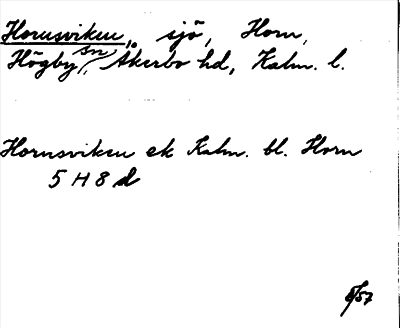 Hornsviken, sjö, Horn,
Högby sn, Åkerbo hd, Kalm. l.
Hornsviken ek Kalm. bl. Horn
5 H 8 d
/57